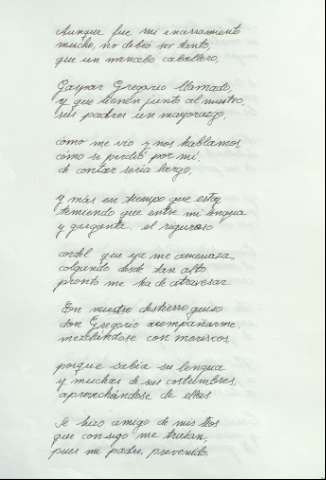 Aunque fue mi encerramiento
mucho, no debió ser tanto,
que un mancebo caballero,
Gaspar Gregorio llamado,
y que tienen junto al nuestro,
sus padres un mayorazgo,
cómo me vio y nos hablamos
cómo se perdió por mí,
de contar sería largo,
y más en tiempo que estoy
temiendo que entre mi lengua
y garganta, el riguroso
cordel que ya me amenaza,
colgando desde tan alto
pronto me ha de atravesar
En nuestro destierro quiso
don Gregorio acompañarme,
mezclándose con moriscos
porque sabía su lengua
y muchas de sus costumbres,
aprovechándose de ellas
Se hizo amigo de mis tíos
que consigo me traían,
pues mi padre, prevenido